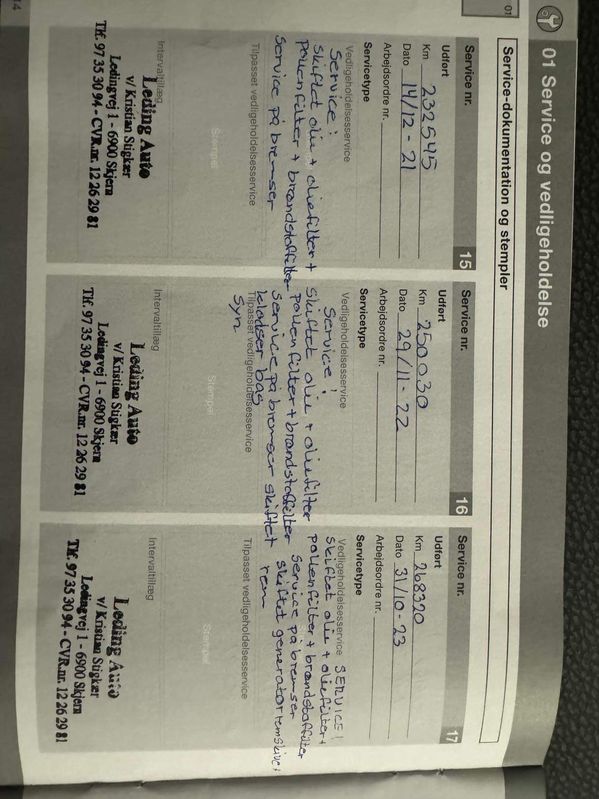 01 Service og vedligeholdelse
01
Service-dokumentation og stempler
Service nr. 15
Udført
Km 232545
Dato 14/12 - 21
Arbejdsordre nr.
Servicetype
Vedligeholdelsesservice
Service!
skiftet olie + oliefilter +
pollenfilter + brændstoffilter
Service på bremser
Tilpasset vedligeholdelsesservice
Stempel
Intervaltillæg
Leding Auto
v/ Kristian Stigkær
Ledingvej 1 - 6900 Skjern
Tlf. 97 35 30 94 - CVR.nr. 12 26 29 81
Service nr. 16
Udført
Km 250030
Dato 29/11 - 22
Arbejdsordre nr.
Servicetype
Vedligeholdelsesservice
Service!
Skiftet olie + oliefilter
pollenfilter + brændstoffilter
Service på bremser skiftet
klodser bag
Tilpasset vedligeholdelsesservice
Syn
Stempel
Intervaltillæg
Leding Auto
v/ Kristian Stigkær
Ledingvej 1 - 6900 Skjern
Tlf. 97 35 30 94 - CVR.nr. 12 26 29 81
Service nr. 17
Udført
Km 268320
Dato 31/10 - 23
Arbejdsordre nr.
Servicetype
Vedligeholdelsesservice SERVICE!
skiftet olie + oliefilter +
pollenfilter + brændstoffilter
Service på bremser
skiftet generator remskive +
rem
Tilpasset vedligeholdelsesservice
Stempel
Intervaltillæg
Leding Auto
v/ Kristian Stigkær
Ledingvej 1 - 6900 Skjern
Tlf. 97 35 30 94 - CVR.nr. 12 26 29 81
14